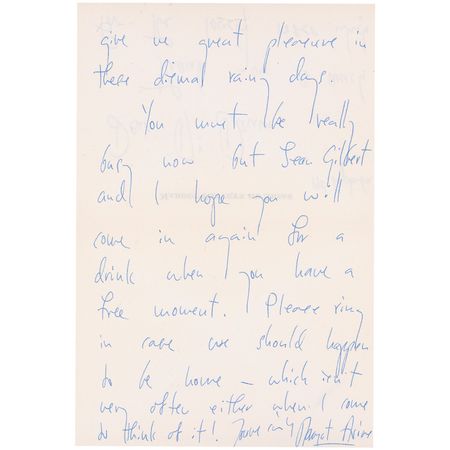 give me great pleasure in
these dismal rainy days.
You must be really
busy now but Jean Gilbert
and I hope you will
come in again for a
drink when you have a
free moment. Please ring
in case we should happen
to be home – which isn't
very often either when I come
to think of it!